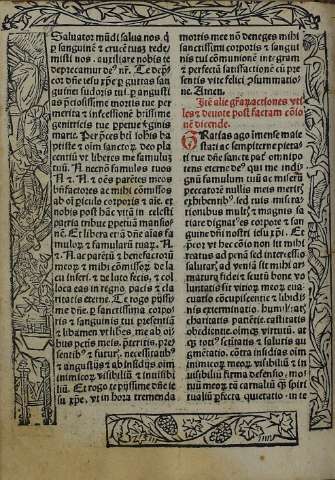 Saluator mūdi salua nos. q̄
ꝑ sanguinē ⁊ crucē tuaʒ rede-
misti nos. auxiliare nobis te
deprecamur de⁹ nr̄. Te dep̄-
cor dn̄e iesu xp̄e ꝑ guttas san
guinei sudoris tui. ꝑ angusti
as p̄ciosissime mortis tue per
merita ⁊ intercessionē btissime
genitricis tue perpetue ƺginis
marie. Per p̄ces bti iohis ba-
ptiste et oīm sanctoꝝ. deo pla
centiū vt liberes me famulum
tuū A. Necnon famulos tuos
A. A. ⁊ oēs parētes meos
bn̄factores ac mihi cōmissos
ab oī ꝑiculo corporis ⁊ aīe. et
nobis post hāc vitā in celesti
patria tribue ꝑpetuā mansio-
nē. Et libera etiā oēs aīas fa
muloꝝ ⁊ famularū tuaꝝ. A.
A. ac parētū ⁊ benefactorū
meoꝝ ⁊ mihi cōmissoꝝ de la
cu inferi ⁊ de luto fecis. ⁊ col
loca eas in regno pacis ⁊ cla
ritatis eterne. Et rogo pijssime
dn̄e. ꝑ sanctissima corpo-
ris ⁊ sanguinis tui presentiā
⁊ libamen vt liberes me ab oī
bus peccatis meis. p̄teritis. pre
sentib⁹ ⁊ futuris. necessitatib⁹
⁊ angustijs ⁊ ab insidijs oīm
inimicoꝝ visibiliū ⁊ inuisibi
liū. Et rogo te pijssime dn̄e ie
su xp̄e. vt in hora tremenda
mortis mee nō deneges mihi
sanctissimi corporis ⁊ sangui
nis tui cōmunionē integram
⁊ perfectā satisfactionē cū pre
sentis vite felici p̄sumatio-
ne. Amen.
Itē alie gratiaꝝ actiones vti
les ⁊ deuote post factam cōio-
nē dicende.
Gratias ago immense maie
stati ac sempiterne pietati
tue dn̄e sancte pat̄ omnipo
tens eterne de⁹ qui me indi-
gnū famulum tuū ac miserū
peccatorē nullis meis meritis
exhibentib⁹. sed tuis mise-
rationibus mult̄. ⁊ magnis sa
tiare dignat⁹ es corpore ⁊ san
guine filij nostri iesu xp̄i. Et
p̄cor vt hec cōio non sit mihi
reatus ad penā sed intercessio
salutaris ad veniā sit mihi ar-
matura fidei ⁊ scutū bone vo
luntatis. sit vitioꝝ meoꝝ eua-
cuatio cōcupiscentie ⁊ libidi
nis exterminatio. humilitatis.
charitatis patiētie castitatis
obedientie oīmqꝫ virtutū. at
qꝫ toti⁹ scitatis ⁊ salutis aug
mentatio. cōtra insidias oīm
inimicoꝝ meoꝝ. visibiliū ⁊ in
uisibiliū firma defensio. mo-
tuū meoꝝ tā carnaliū qꝫ spiri
tualiū perfecta quietatio. in te